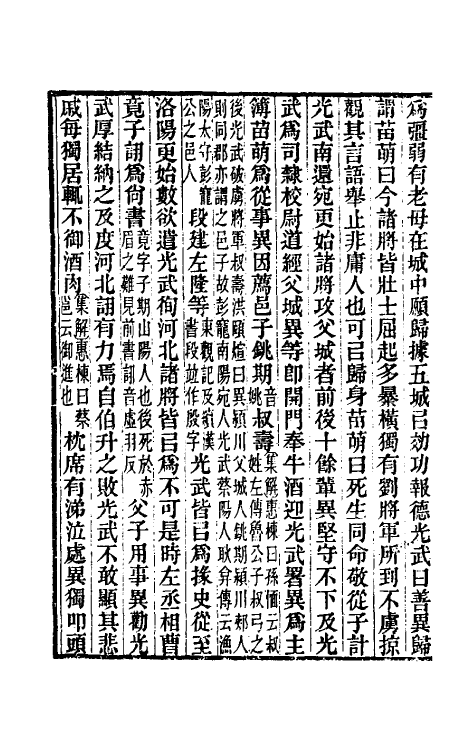 爲彊弱有老母在城中願歸據五城㠯効功報德光武曰善異歸
謂苗萌曰今諸將皆壯士屈起多暴橫獨有劉將軍所到不虜掠
觀其言語舉止非庸人也可㠯歸身苗萌曰死生同命敬從子計
光武南還宛更始諸將攻父城者前後十餘輩異堅守不下及光
武爲司隸校尉道經父城異等卽開門奉牛酒迎光武署異爲主
簿苗萌爲從事異因薦邑子銚期音姚叔壽集解惠棟曰孫愐云叔姓左傳魯公子叔弓之
後光武破虜將軍叔壽洪頤煊曰異潁川父城人銚期潁川郟人
則同郡亦謂之邑子故彭寵南陽宛人光武蔡陽人耿弇傳云漁
陽太守彭寵公之邑人段建左隆等東觀記及續漢書段竝作殷字光武皆㠯爲掾史從至
洛陽更始數欲遣光武徇河北諸將皆㠯爲不可是時左丞相曹
竟子詡爲尙書竟字子期山陽人也後死於赤眉之難見前書詡音虛羽反父子用事異勸光
武厚結納之及度河北詡有力焉自伯升之敗光武不敢顯其悲
戚每獨居輒不御酒肉集解惠棟曰蔡邕云御進也枕席有涕泣處異獨叩頭